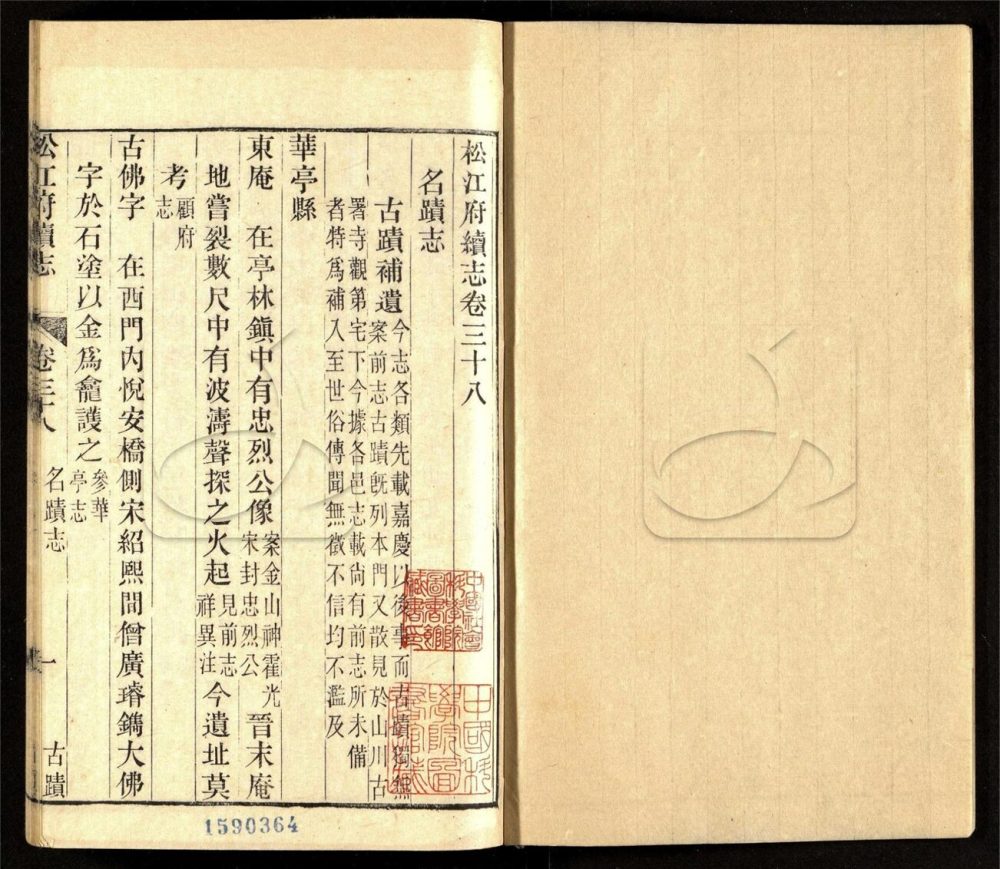 松江府續志卷三十八
名蹟志
古蹟補遺
今志各類先載嘉慶以後事而古蹟獨無
案前志古蹟旣列本門又散見於山川古
署寺觀第宅下今據各邑志載尙有前志所未備
者特爲補入至世俗傳聞無徵不信均不濫及
華亭縣
東庵　在亭林鎭中有忠烈公像案金山神霍光宋封忠烈公晉末庵
地嘗裂數尺中有波濤聲探之火起見前志祥異注今遺址莫
考顧府志
古佛字　在西門內悅安橋側宋紹熙間僧廣璿鐫大佛
字於石塗以金爲龕護之參華亭志
松江府續志　卷三十八　名蹟志　一　古蹟
中國科學院圖書館藏
1590364